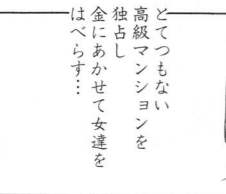 とてつもない
高級マンションを
独占し
金にあかせて女達を
はべらす…